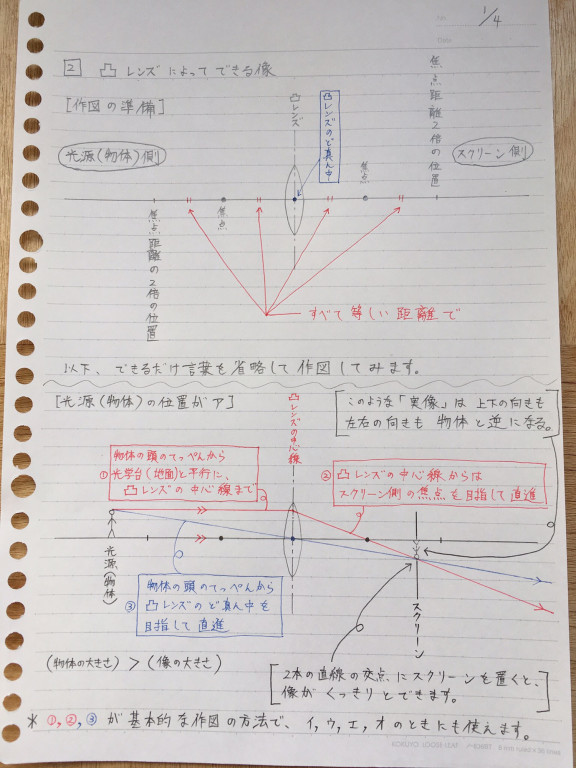 1/4
2 凸レンズによってできる像
[作図の準備]
光源(物体)側
凸レンズ
凸レンズのど真ん中
焦点距離2倍の位置
スクリーン側
焦点
焦点
焦点距離の2倍の位置
すべて等しい距離で
以下、できるだけ言葉を省略して作図してみます。
[光源(物体)の位置がア]
凸レンズの中心線
このような「実像」は上下の向きも
左右の向きも物体と逆になる。
物体の頭のてっぺんから
①光学台(地面)と平行に、
凸レンズの中心線まで
②凸レンズの中心線からは
スクリーン側の焦点を目指して直進
光源(物体)
物体の頭のてっぺんから
③凸レンズのど真ん中を
目指して直進
スクリーン
(物体の大きさ)>(像の大きさ)
2本の直線の交点にスクリーンを置くと、
像がくっきりとできます。
*①,②,③が基本的な作図の方法で、イ,ウ,エ,オのときにも使えます。